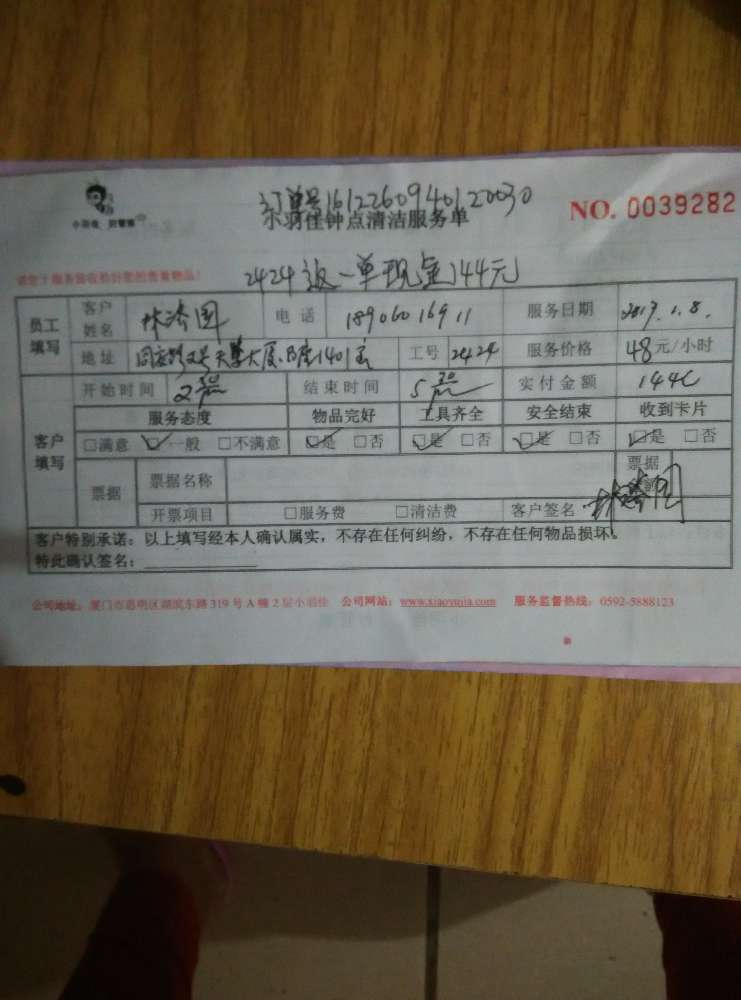 订单号16122609401 20030
小羽佳 好管家
小羽佳钟点清洁服务单
NO. 0039282
请您于服务前收拾好您的贵重物品！
2424 返一单现金144元
员工填写 客户姓名 电话 18906016911 服务日期 2017.1.8.
地址 大厦B座1401室 工号 2424 服务价格 48元/小时
客户填写 开始时间 2 30 结束时间 5 30 实付金额 144元
服务态度 物品完好 工具齐全 安全结束 收到卡片
□满意 ☑一般 □不满意 ☑是 □否 ☑是 □否 ☑是 □否 ☑是 □否
票据 票据名称 票据
开票项目 □服务费 □清洁费 客户签名
客户特别承诺：以上填写经本人确认属实，不存在任何纠纷，不存在任何物品损坏。
特此确认签名：
公司地址：厦门市思明区湖滨东路 319 号 A 幢 2 层小羽佳 公司网站：www.xiaoyujia.com 服务监督热线：0592-5888123